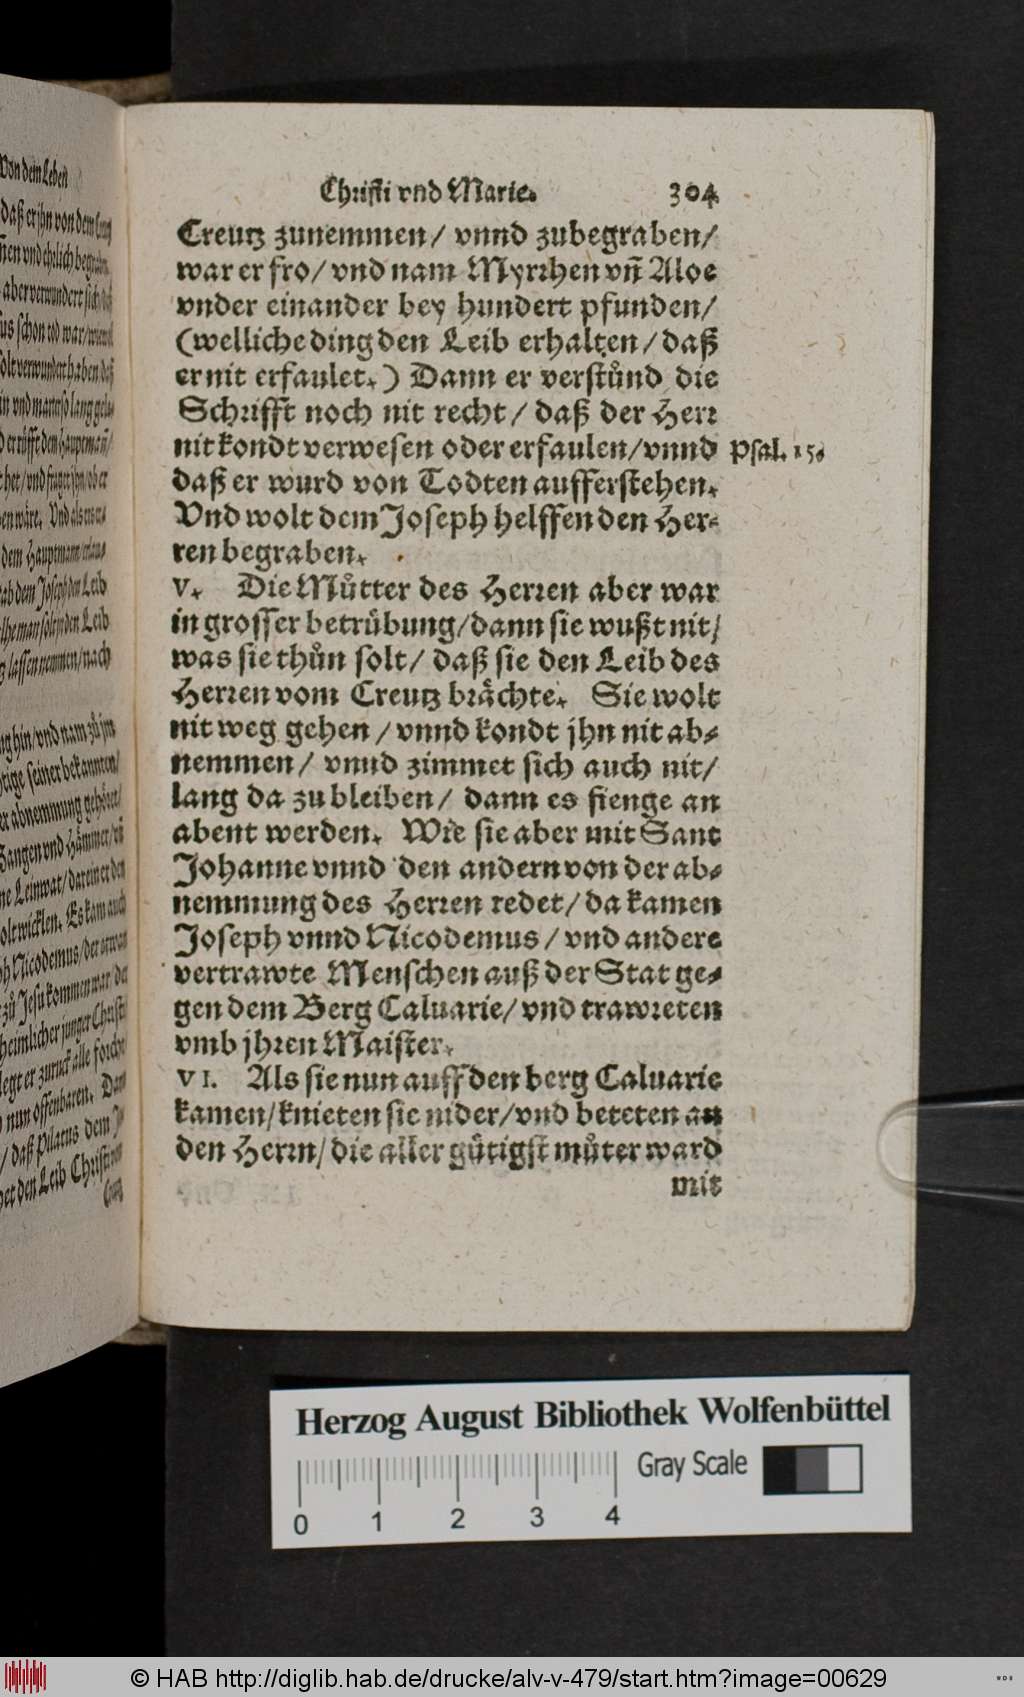 Von dem Leben
daß er jhn von dem
vnd ehrlich begraben
aber verwundert sich
schon tod war
solt verwundert haben daß
vnd mann so lang
er rüfft den Hauptmañ/
vnd fraget jhn/ob er
wäre. Vnd als
dem Hauptmann
gab dem Joseph den Leib
man solt jm den Leib
lassen nemmen/nach
hin/vnd nam zů jm
seiner bekannten/
abnemmung gehöret/
Zangen vnd Hämmer/vñ
Leinwat/darein er den
wolt wicklen. Es kam auch
Nicodemus/der etwan
zů Jesu kommen war/der
heimlicher junger Christi
legt er zuruck alle forcht
nun offenbaren. Dann
/daß Pilatus dem
den Leib Christi vom
Creutz
Christi vnd Marie. 304
Creutz zunemmen/ vnnd zubegraben/
war er fro/ vnd nam Myrrhen vñ Aloe
vnder einander bey hundert pfunden/
(welliche ding den Leib erhalten/ daß
er nit erfaulet.) Dann er verstůnd die
Schrifft noch nit recht/ daß der Herr
nit kondt verwesen oder erfaulen/vnnd Psal. 15.
daß er wurd von Todten aufferstehen.
Vnd wolt dem Joseph helffen den Her-
ren begraben.
V. Die Můtter des Herren aber war
in grosser betrübung/dann sie wußt nit/
was sie thůn solt/ daß sie den Leib des
Herren vom Creutz brächte. Sie wolt
nit weg gehen/ vnnd kondt jhn nit ab-
nemmen/ vnnd zimmet sich auch nit/
lang da zu bleiben/ dann es fienge an
abent werden. Wie sie aber mit Sant
Johanne vnnd den andern von der ab-
nemmung des Herren redet/ da kamen
Joseph vnnd Nicodemus/ vnd andere
vertrawte Menschen auß der Stat ge-
gen dem Berg Caluarie/ vnd trawreten
vmb jhren Maister.
VI. Als sie nun auff den berg Caluarie
kamen/knieten sie nider/vnd beteten an
den Herrn/die aller gütigst můter ward
mit
Herzog August Bibliothek Wolfenbüttel
Gray Scale
0 1 2 3 4
© HAB http://diglib.hab.de/drucke/alv-v-479/start.htm?image=00629